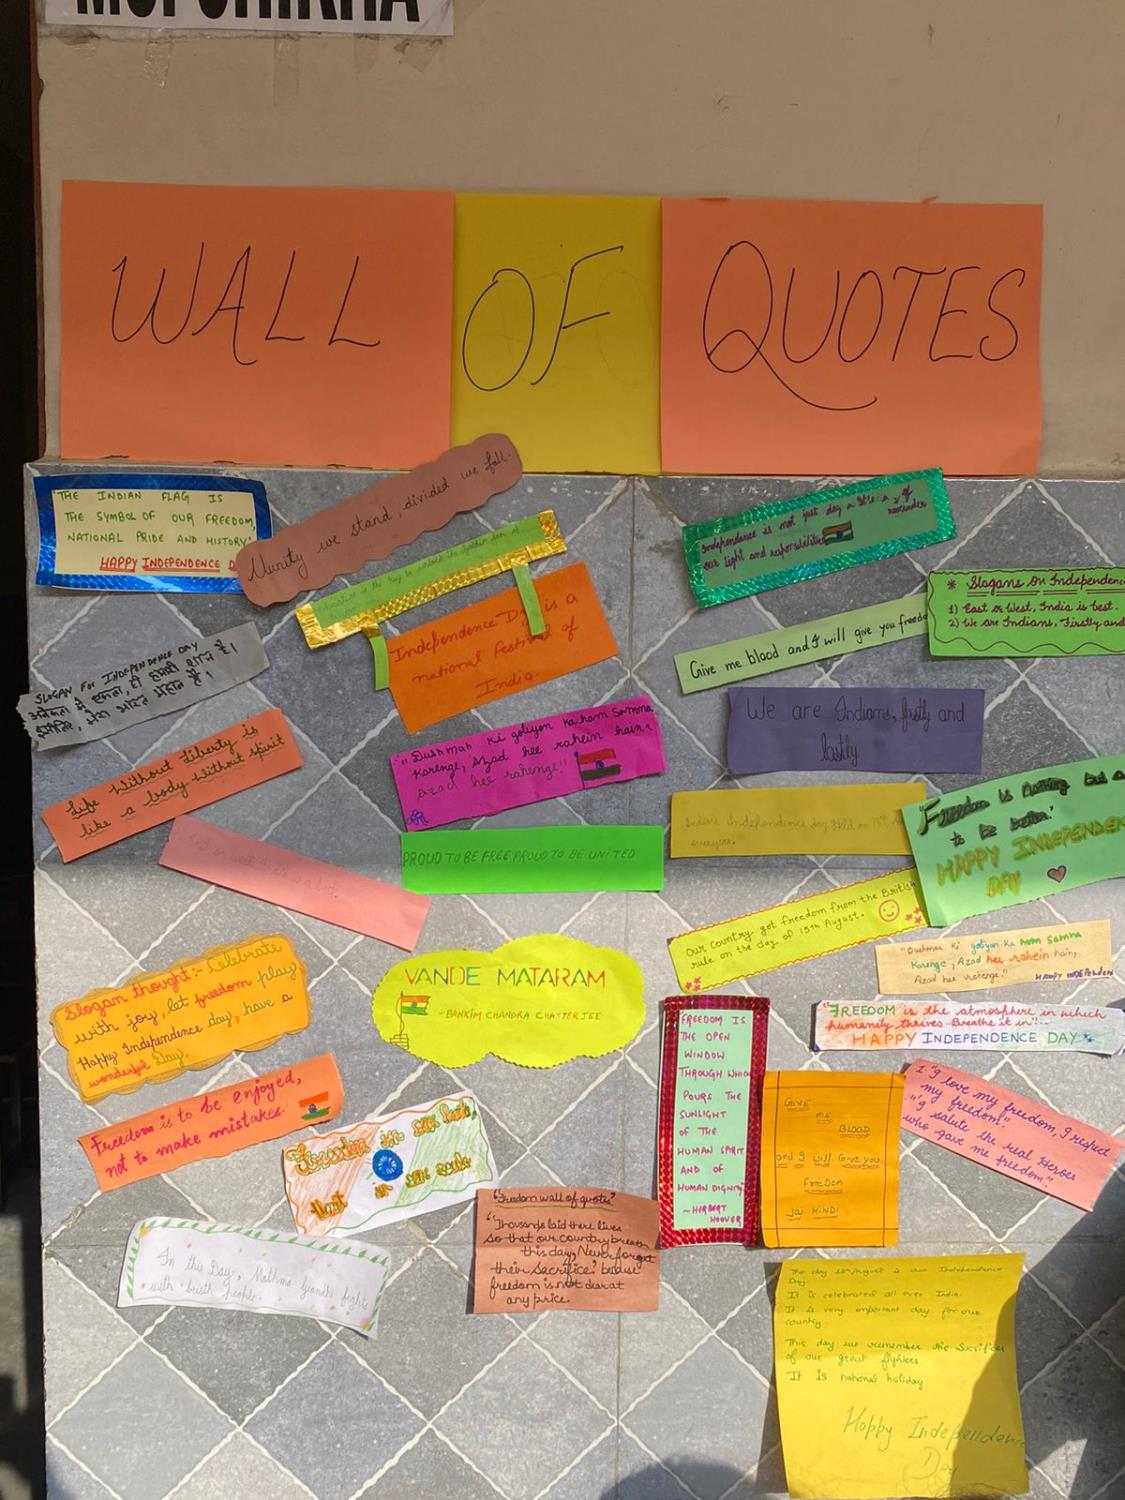 WALL OF QUOTES
"THE INDIAN FLAG IS
THE SYMBOL OF OUR FREEDOM,
NATIONAL PRIDE AND HISTORY"
HAPPY INDEPENDENCE D
we stand, divided we fall.
Independence is not just day a
reminder
our right and
* Slogans on Independence
1) East or West, India is best.
2) We are Indians, Firstly and
Independence Day is a
national festival of
India.
Give me blood and I will give you freedo
SLOGAN FOR INDEPENDENCE DAY
We are Indians, firstly and
lastly
"Dushmah ki goliyon ka ham Samna
Karenge, Azad hee rahein hain,
Azad hee rahenge!!
Life Without Liberty is
like a body without spirit
India's Independence day Held on 15th
everyone.
"Freedom is nothing but a
to be better."
HAPPY INDEPENDEN
DAY
PROUD TO BE FREE.PROUD TO BE UNITED
Our country got freedom from the British
rule on the day of 15th August.
"Dushman ki goliyon ka ham Samna
Karenge, Azad hee rahein hain,
Azad hee rahenge!!
HAPPY INDEPENDEN
Slogan thought:- Celebrate
with joy, let freedom play,
Happy Independence day, have a
wonderful Day.
VANDE MATARAM
- BANKIM CHANDRA CHATTERJEE
"FREEDOM is the atmosphere in which
humanity thrives. Breathe it in"..
HAPPY INDEPENDENCE DAY
FREEDOM IS
THE OPEN
WINDOW
THROUGH WHICH
POURS THE
SUNLIGHT
OF THE
HUMAN SPIRIT
AND OF
HUMAN DIGNITY"
~HERBERT
HOOVER
GIVE
ME
BLOOD
and I will Give you
FreeDon
Jai HINDI
"I love my freedom, I respect
my freedom."
"I salute the real Heroes
who gave me freedom".
Freedom is to be enjoyed,
not to make mistakes.
Freedom in
in
"Freedom wall of quotes"
"Thousands laid there lives
so that our country breath
this day, Never forget
their Sacrifice" because
freedom is not dearat
any price.
In this Day, Mathma Gandhi fights
with
The day 15th August is our Independence
Day.
It is celebrated all over India.
It is very important day for our
country.
This day we remember the Sacrifices
of our great fighters
It is national holiday
Happy Independence
Day